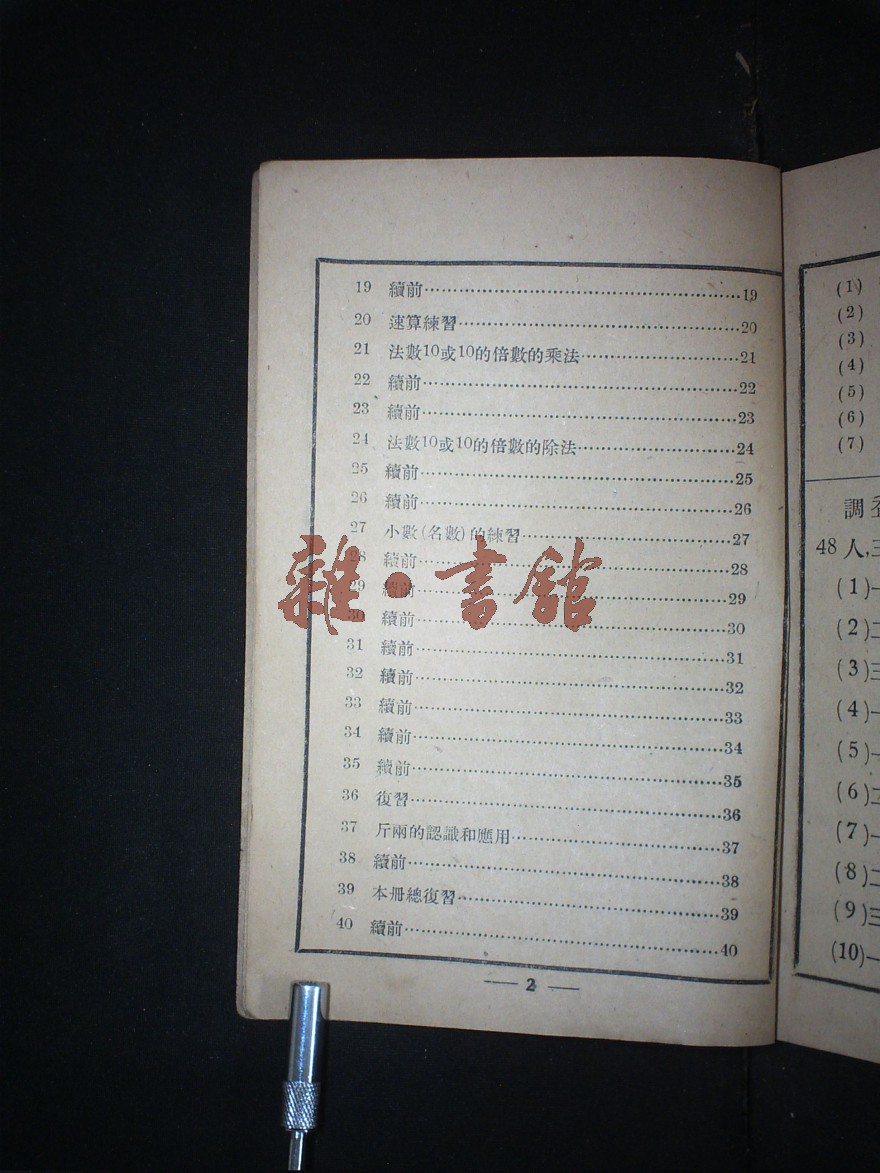 19 續前…19
20 速算練習…20
21 法數10或10的倍數的乘法…21
22 續前…22
23 續前…23
24 法數10或10的倍數的除法…24
25 續前…25
26 續前…26
27 小數(名數)的練習…27
28 續前…28
29 續前…29
30 續前…30
31 續前…31
32 續前…32
33 續前…33
34 續前…34
35 續前…35
36 復習…36
37 斤兩的認識和應用…37
38 續前…38
39 本冊總復習…39
40 續前…40
— 2 —
雜·書館
(1)
(2)
(3)
(4)
(5)
(6)
(7)
調查
48人,三
(1)一
(2)二
(3)三
(4)一
(5)一
(6)二
(7)一
(8)二
(9)三
(10)一